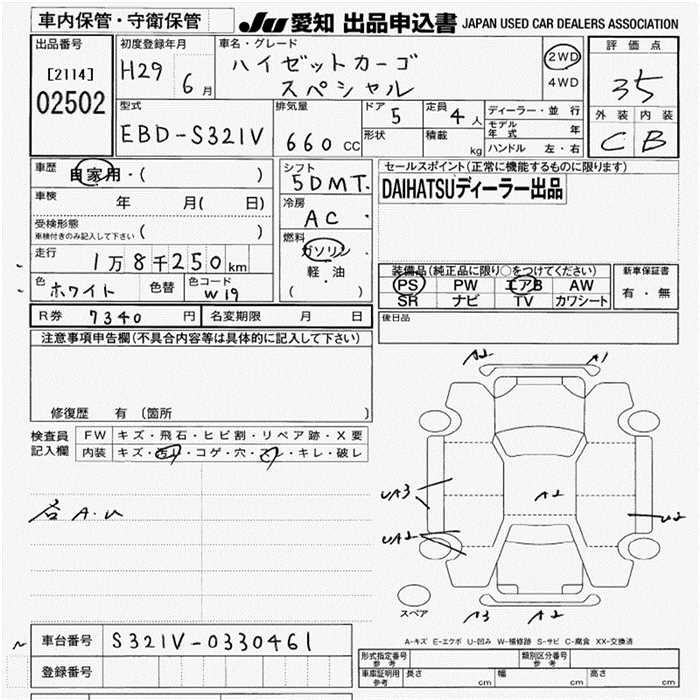 車内保管・守衛保管
JU 愛知 出品申込書 JAPAN USED CAR DEALERS ASSOCIATION
出品番号
[2114]
02502
初度登録年月
H29 6月
車名・グレード
ハイゼットカーゴ
スペシャル
2WD
4WD
評価点
3.5
外装 内装
C B
型式
EBD-S321V
排気量
660 CC
ドア 5
形状
定員 4人
積載 kg
ディーラー・並行
モデル年式 年
ハンドル 左・右
車歴 自家用・( )
車検 年 月( 日)
受検形態
車検付きのみ記入して下さい ( )
走行 1万8千250km
色 ホワイト 色替 色コード W19
シフト
5DMT.
冷房
AC
燃料
ガソリン
軽・油
( ・ )
セールスポイント(正常に機能するものに限ります)
DAIHATSUディーラー出品
装備品(純正品に限り○をつけてください)
PS PW エアB AW
SR ナビ TV カワシート
新車保証書
有・無
R券 7340 円 名変期限 月 日
後日品
注意事項申告欄(不具合内容等は具体的に記入して下さい)
修復歴 有 (箇所 )
検査員記入欄
FW キズ・飛石・ヒビ割・リペア跡・X要
内装 キズ・汚れ・コゲ・穴・スレ・キレ・破レ
A.U
A2 A1
UA3 A2
UA2 U2
スペア
A3 A2
A-キズ E-エクボ U-凹み W-補修跡 S-サビ C-腐食 XX-交換済
車台番号 S321V-0330461
登録番号
形式指定番号 参考 類別区分番号 参考
車庫証明用 参考 長さ cm 幅 cm 高さ cm